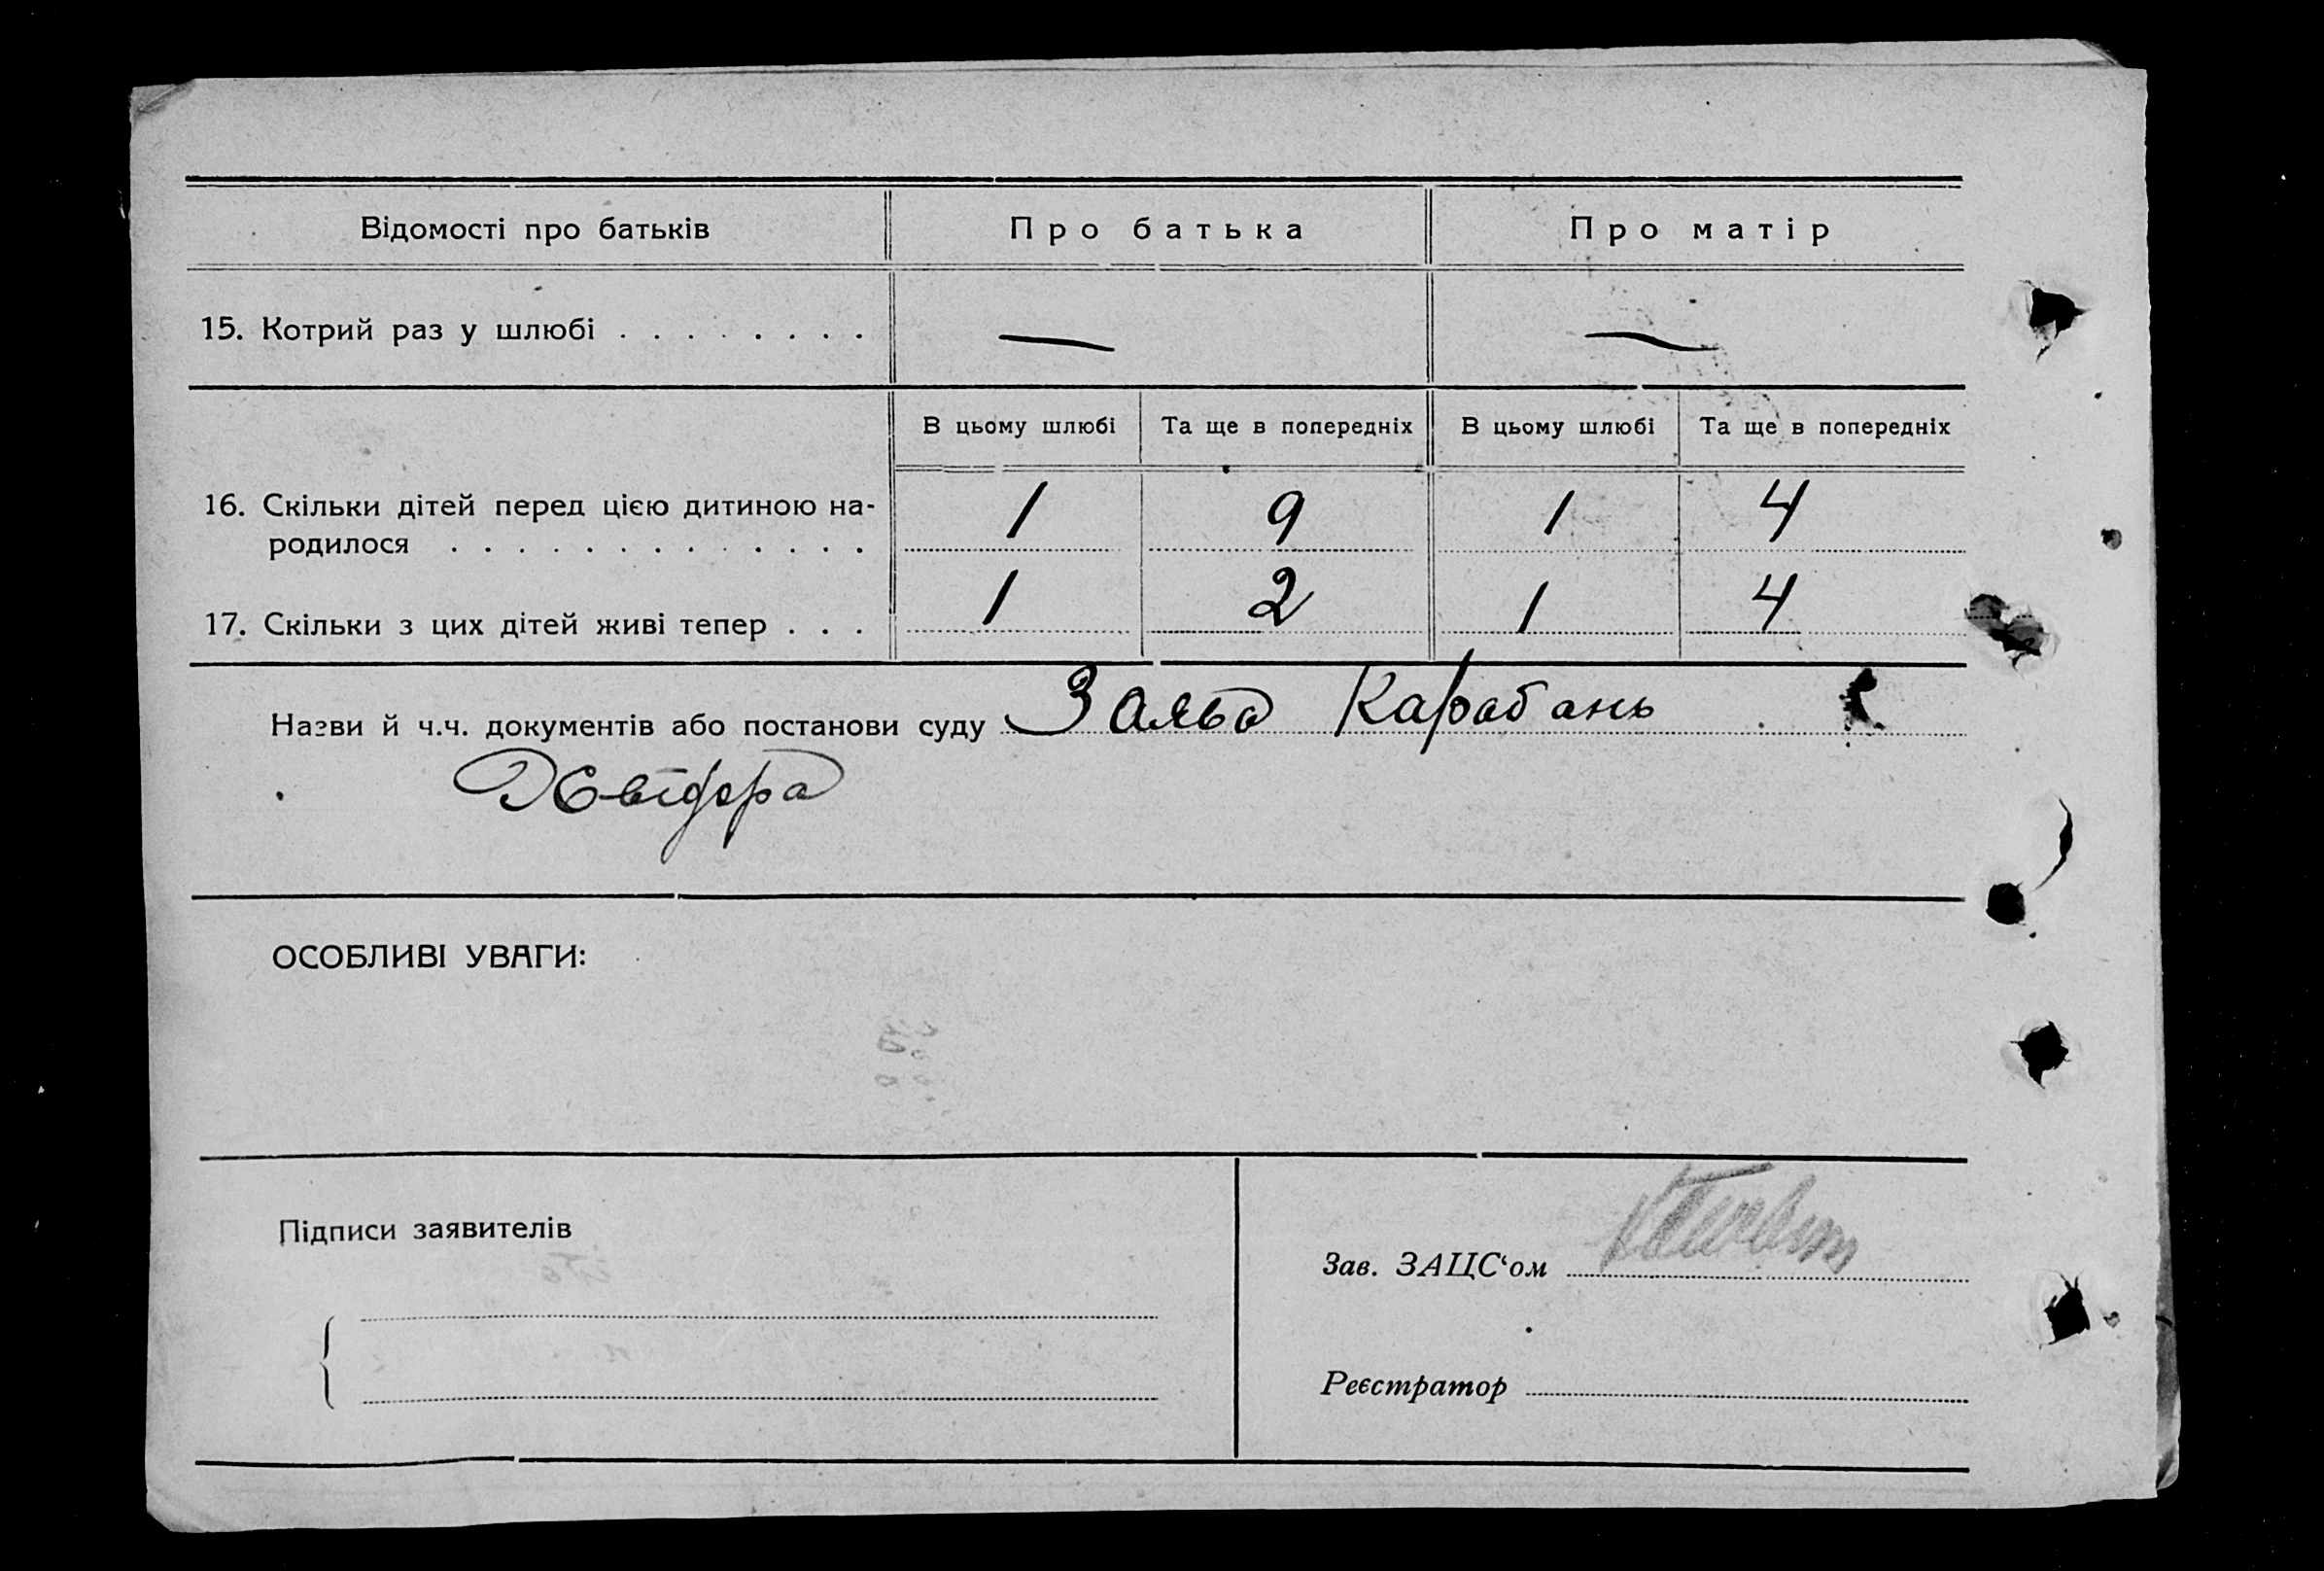 Відомості про батьків Про батька Про матір
15. Котрий раз у шлюбі . . . . . . . . — —
В цьому шлюбі Та ще в попередніх В цьому шлюбі Та ще в попередніх
16. Скільки дітей перед цією дитиною на-
родилося . . . . . . . . . . . . . 1 9 1 4
17. Скільки з цих дітей живі тепер . . . 1 2 1 4
Назви й ч.ч. документів або постанови суду Заява Карабань
ОСОБЛИВІ УВАГИ:
Підписи заявителів
Зав. ЗАЦС‘ом
Реєстратор